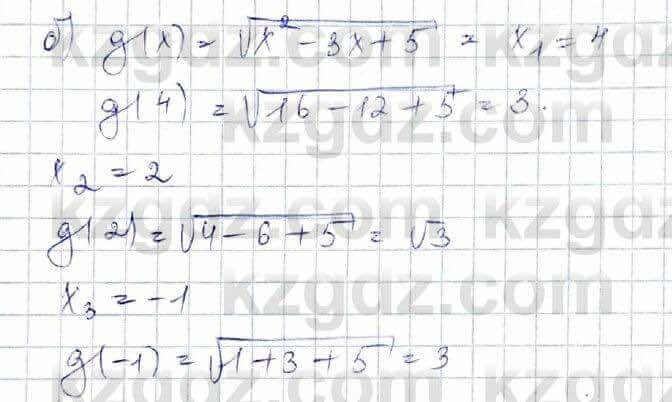 б) g(x) = √(x² - 3x + 5) = x₁ = 4
g(4) = √(16 - 12 + 5) = 3.
x₂ = 2
g(2) = √(4 - 6 + 5) = √3
x₃ = -1
g(-1) = √(1 + 3 + 5) = 3
kzgdz.com
kzgdz.com
kzgdz.com
kzgdz.com
kzgdz.com